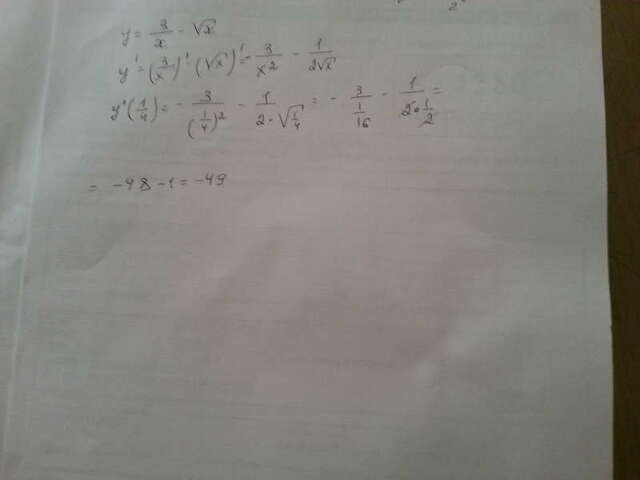 y = 3/x - √x
y' = (3/x)' - (√x)' = - 3/x² - 1/2√x
y'(1/4) = - 3/(1/4)² - 1/2·√1/4 = - 3/1/16 - 1/2·1/2 =
= -48 - 1 = -49